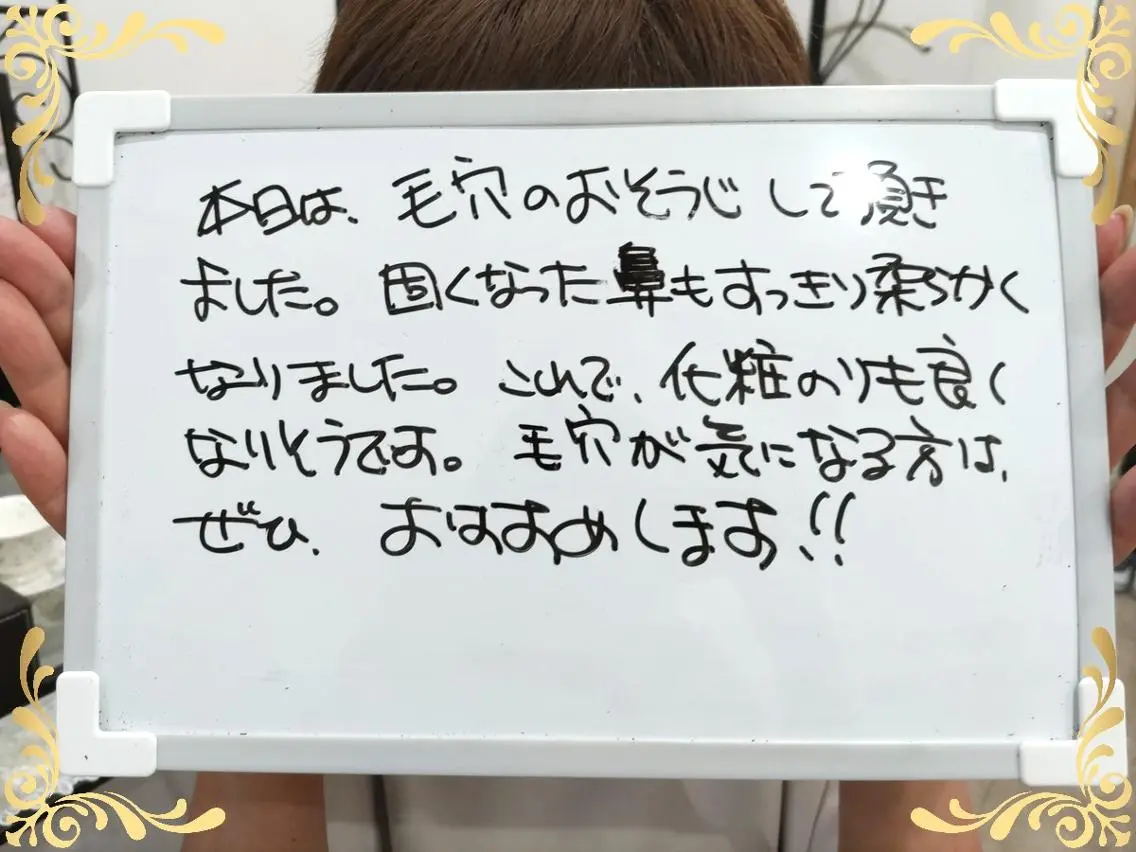 本日は、毛穴のおそうじして頂き
ました。固くなった鼻もすっきり柔らかく
なりました。これで、化粧のりも良く
なりそうです。毛穴が気になる方は、
ぜひ、おすすめします!!